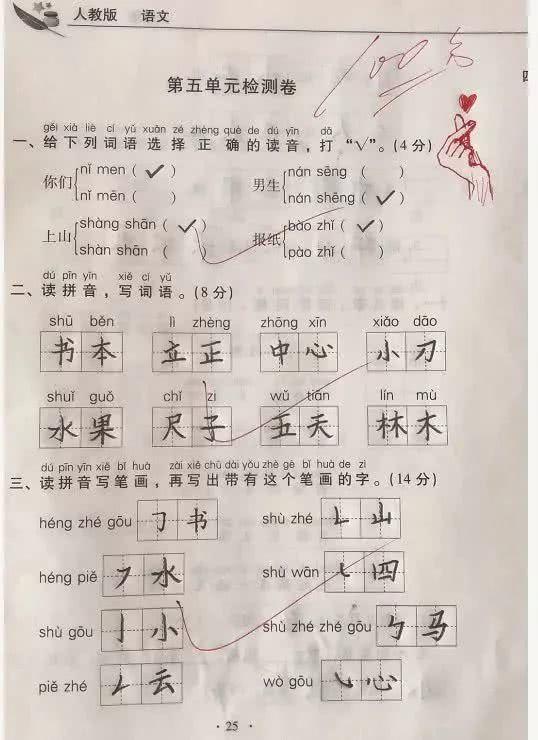 人教版 语文
100分
四
第五单元检测卷
gěi xià liè cí yǔ xuǎn zé zhèng què de dú yīn dǎ
一、给下列词语选择正确的读音,打“√”。(4分)
你们 nǐ men (✓) 男生 nán sēng ( )
nǐ mēn ( ) nán shēng (✓)
上山 shàng shān (✓) 报纸 bào zhǐ (✓)
shàn shān ( ) pào zhǐ ( )
dú pīn yīn xiě cí yǔ
二、读拼音,写词语。(8分)
shū běn lì zhèng zhōng xīn xiǎo dāo
书本 立正 中心 小刀
shuǐ guǒ chǐ zi wǔ tiān lín mù
水果 尺子 五天 林木
dú pīn yīn xiě bǐ huà zài xiě chū dài yǒu zhè gè bǐ huà de zì
三、读拼音写笔画,再写出带有这个笔画的字。(14分)
héng zhé gōu ㇆ 书 shù zhé ㇗ 山
héng piě ㇇ 水 shù wān ㇄ 四
shù gōu 亅 小 shù zhé zhé gōu ㇉ 马
piě zhé ㇜ 云 wò gōu ㇃ 心
· 25 ·